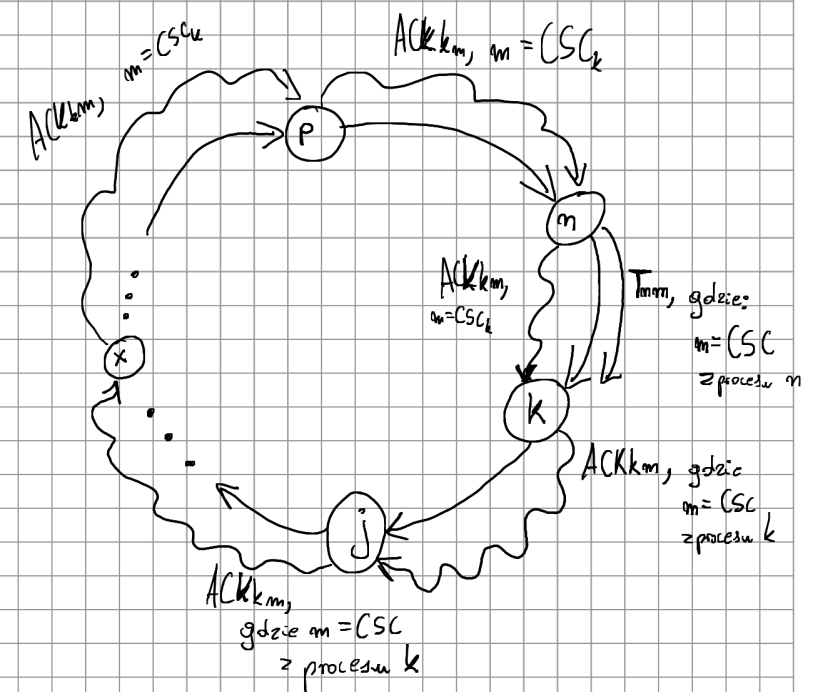 ACKkm, m = CSCk
ACKkm, m = CSCk
P
n
ACKkm,
m = CSCk
Tnm, gdzie:
m = CSC
z procesu n
x
k
ACKkm, gdzie
m = CSC
z procesu k
j
ACKkm,
gdzie m = CSC
z procesu k